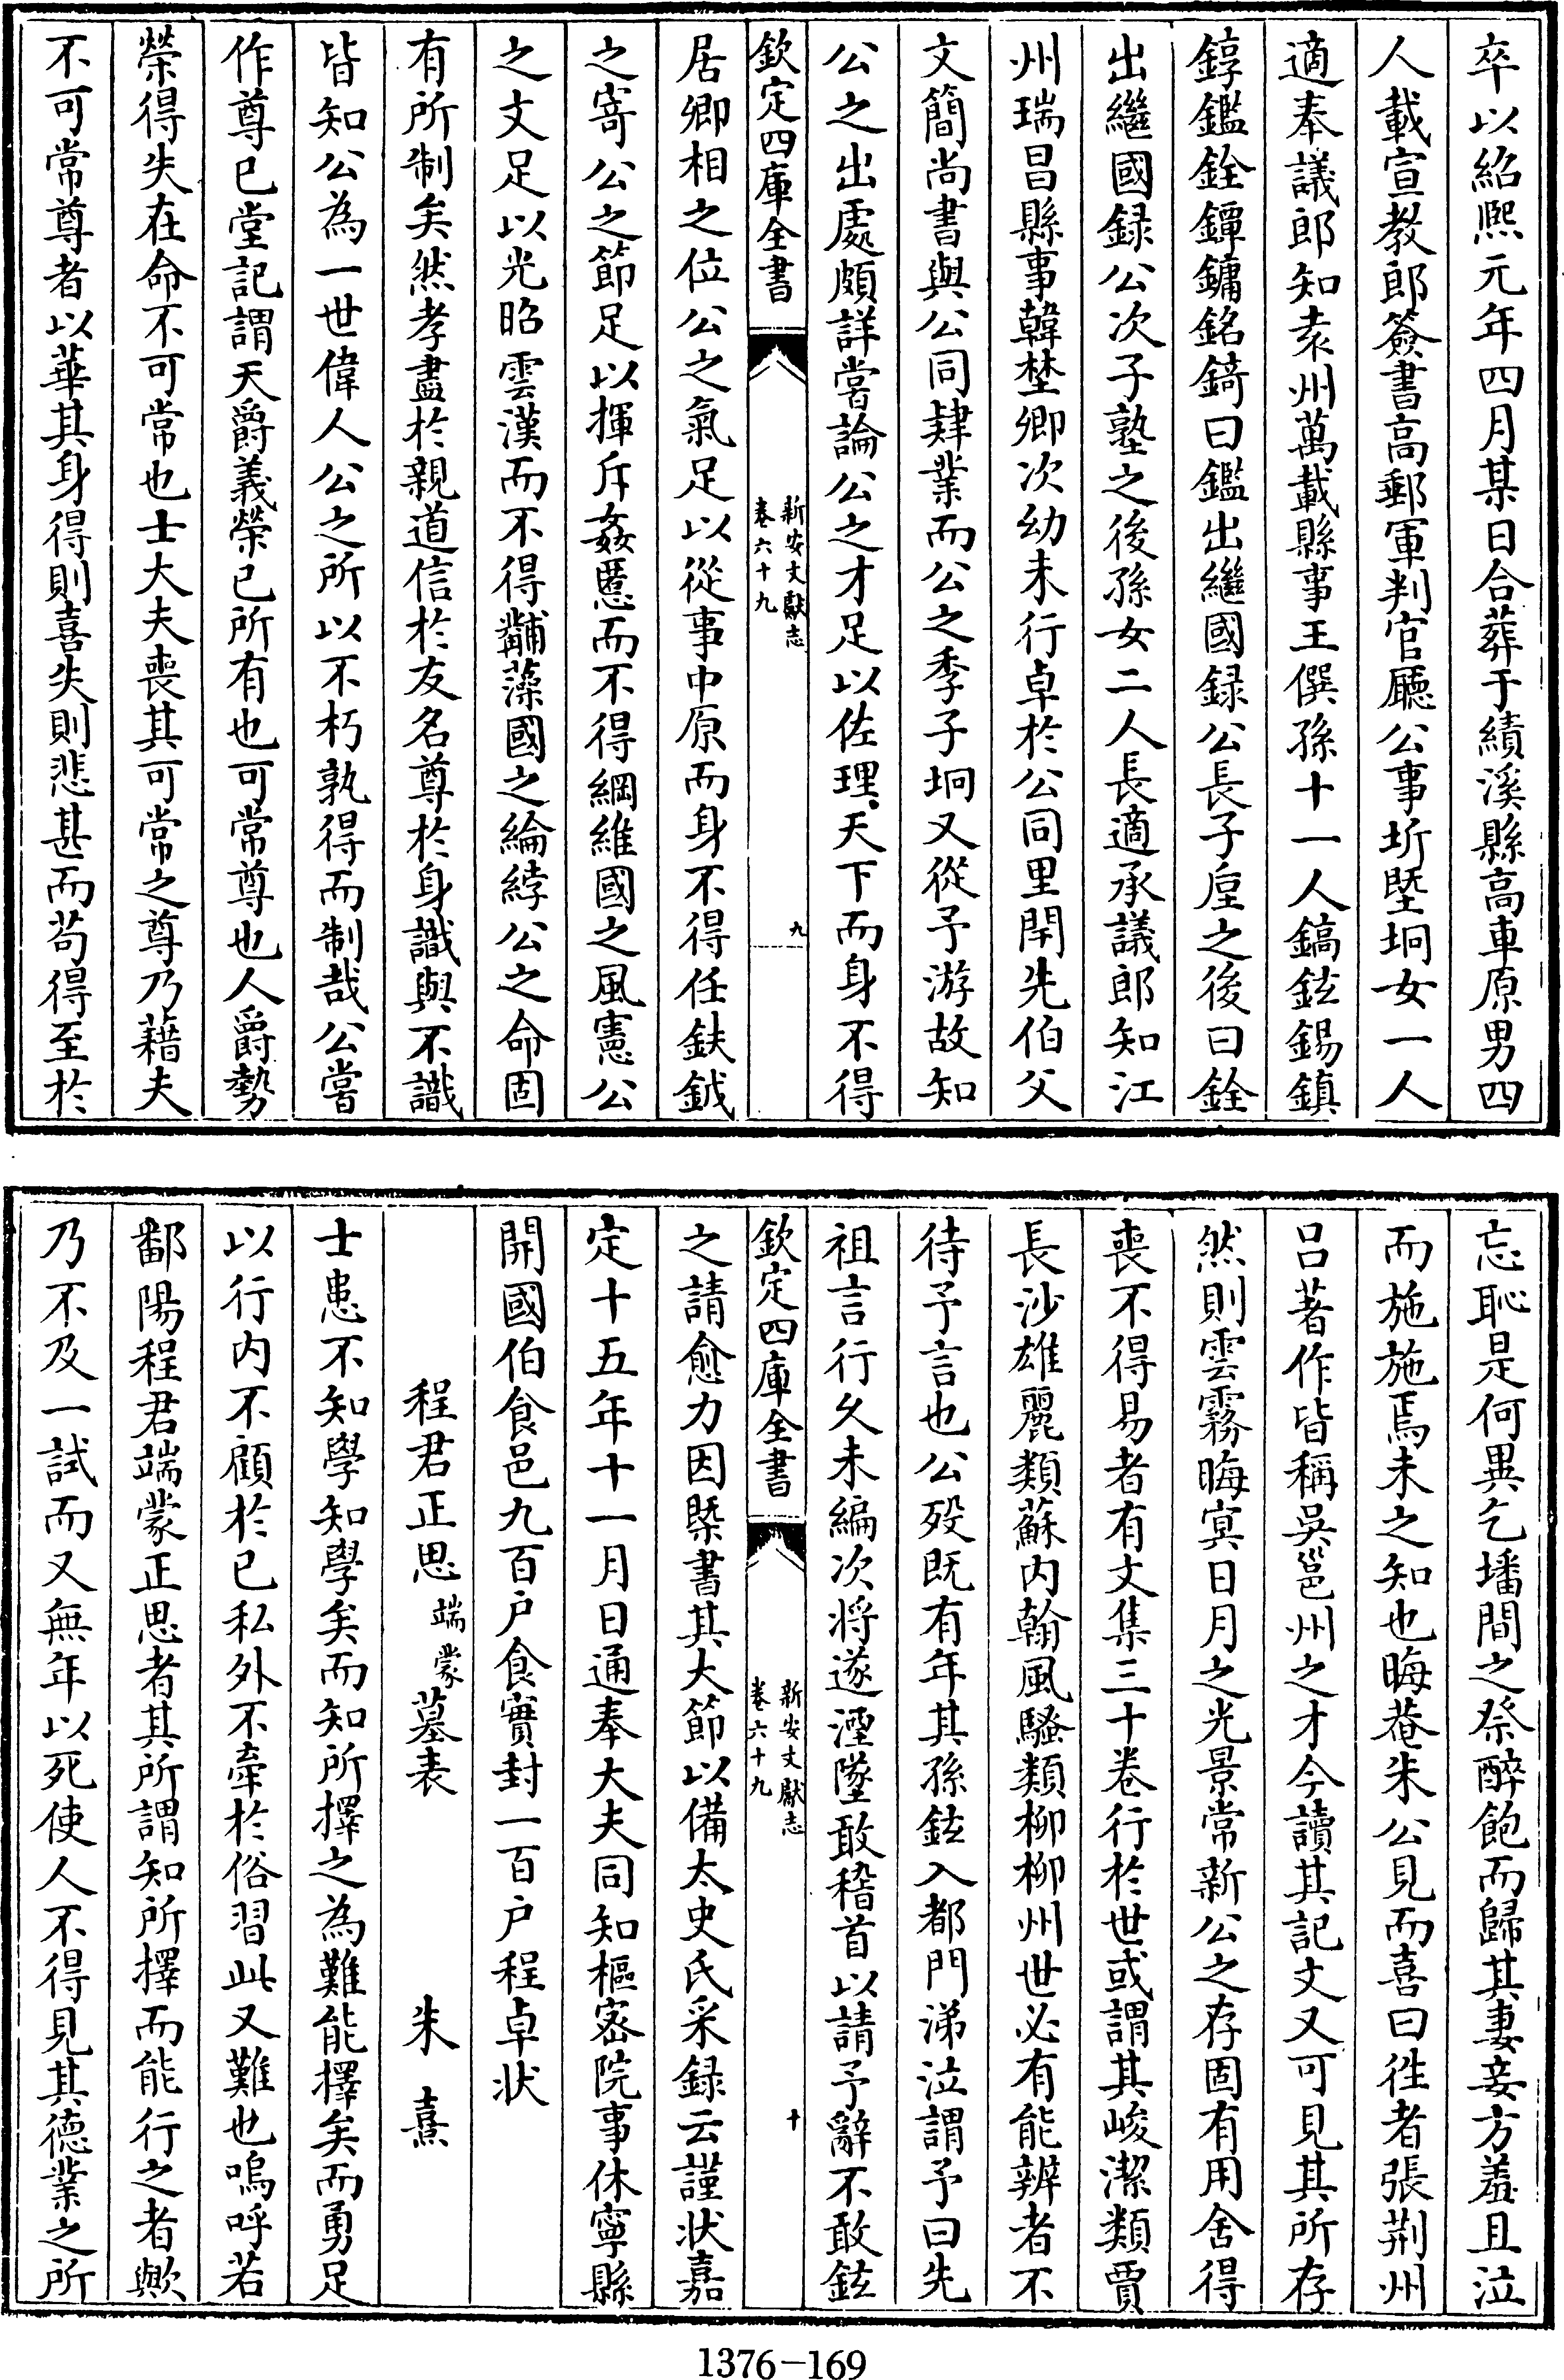 卒以紹熙元年四月某日合葬于績溪縣高車原男四
人載宣教郎簽書高郵軍判官廳公事圻塈坰女一人
適奉議郎知袁州萬載縣事王僎孫十一人鎬鉉錫鎮
錞鑑銓鐔鏞銘錡曰鑑出繼國録公長子垕之後曰銓
出繼國録公次子塾之後孫女二人長適承議郎知江
州瑞昌縣事韓埜卿次幼未行卓於公同里閈先伯父
文簡尚書與公同肄業而公之季子坰又從予游故知
公之出處頗詳嘗論公之才足以佐理天下而身不得
欽定四庫全書
新安文獻志
卷六十九
九
居卿相之位公之氣足以從事中原而身不得任鈇鉞
之寄公之節足以揮斥姦慝而不得綱維國之風憲公
之文足以光昭雲漢而不得黼藻國之綸綍公之命固
有所制矣然孝盡於親道信於友名尊於身識與不識
皆知公為一世偉人公之所以不朽孰得而制哉公嘗
作尊已堂記謂天爵義榮已所有也可常尊也人爵勢
榮得失在命不可常也士大夫喪其可常之尊乃藉夫
不可常尊者以華其身得則喜失則悲甚而苟得至於
忘恥是何異乞墦間之祭醉飽而歸其妻妾方羞且泣
而施施焉未之知也晦菴朱公見而喜曰徃者張荆州
吕著作皆稱吳邕州之才今讀其記文又可見其所存
然則雲霧晦寞日月之光景常新公之存固有用舍得
喪不得易者有文集三十卷行於世或謂其峻潔類賈
長沙雄麗類蘇内翰風騷類柳柳州世必有能辨者不
待予言也公殁既有年其孫鉉入都門涕泣謂予曰先
祖言行久未編次將遂湮墜敢稽首以請予辭不敢鉉
欽定四庫全書
新安文獻志
卷六十九
十
之請愈力因槩書其大節以備太史氏采録云謹狀嘉
定十五年十一月日通奉大夫同知樞密院事休寧縣
開國伯食邑九百户食實封一百户程卓状
程君正思端蒙墓表 朱熹
士患不知學知學矣而知所擇之為難能擇矣而勇足
以行内不顧於已私外不牽於俗習此又難也嗚呼若
鄱陽程君端蒙正思者其所謂知所擇而能行之者歟
乃不及一試而又無年以死使人不得見其德業之所
1376-169